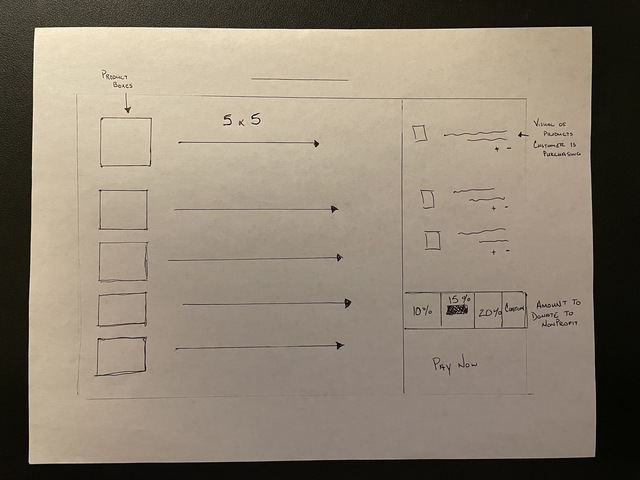 PRODUCT
BOXES
5 x 5
+ -
VISUAL OF
PRODUCTS
CUSTOMER IS
PURCHASING
+ -
+ -
10%
15%
20%
Custom
AMOUNT TO
DONATE TO
NONPROFIT
PAY NOW